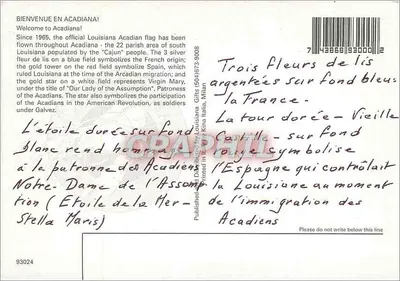 BIENVENUE EN ACADIANA!
Welcome to Acadiana!
Since 1965, the official Louisiana Acadian flag has been
flown throughout Acadiana - the 22 parish area of south
Louisiana populated by the "Cajun" people. The 3 silver
fleur de lis on a blue field symbolizes the French origin;
the gold tower on the red field symbolize Spain, which
ruled Louisiana at the time of the Arcadian migration; and
the gold star on a white field represents Virgin Mary,
under the title of "Our Lady of the Assumption", Patroness
of the Acadians. The star also symbolizes the participation
of the Acadians in the American Revolution, as soldiers
under Galvez.
L'étoile dorée sur fond
blanc rend hommage
à la patronne des Acadiens
Notre-Dame de l'Assomp
tion (Etoile de la Mer-
Stella Maris)
93024
Gifts (504)673-9008
Printed in Italy Kina Italia, Milan
7 43866 93000 2
Trois fleurs de lis
argentées sur fond bleu:
la France.
La tour dorée - Vieille
Castille - sur fond
rouge symbolise
l'Espagne qui contrôlait
la Louisiane au moment
de l'immigration des
Acadiens
Please do not write below this line